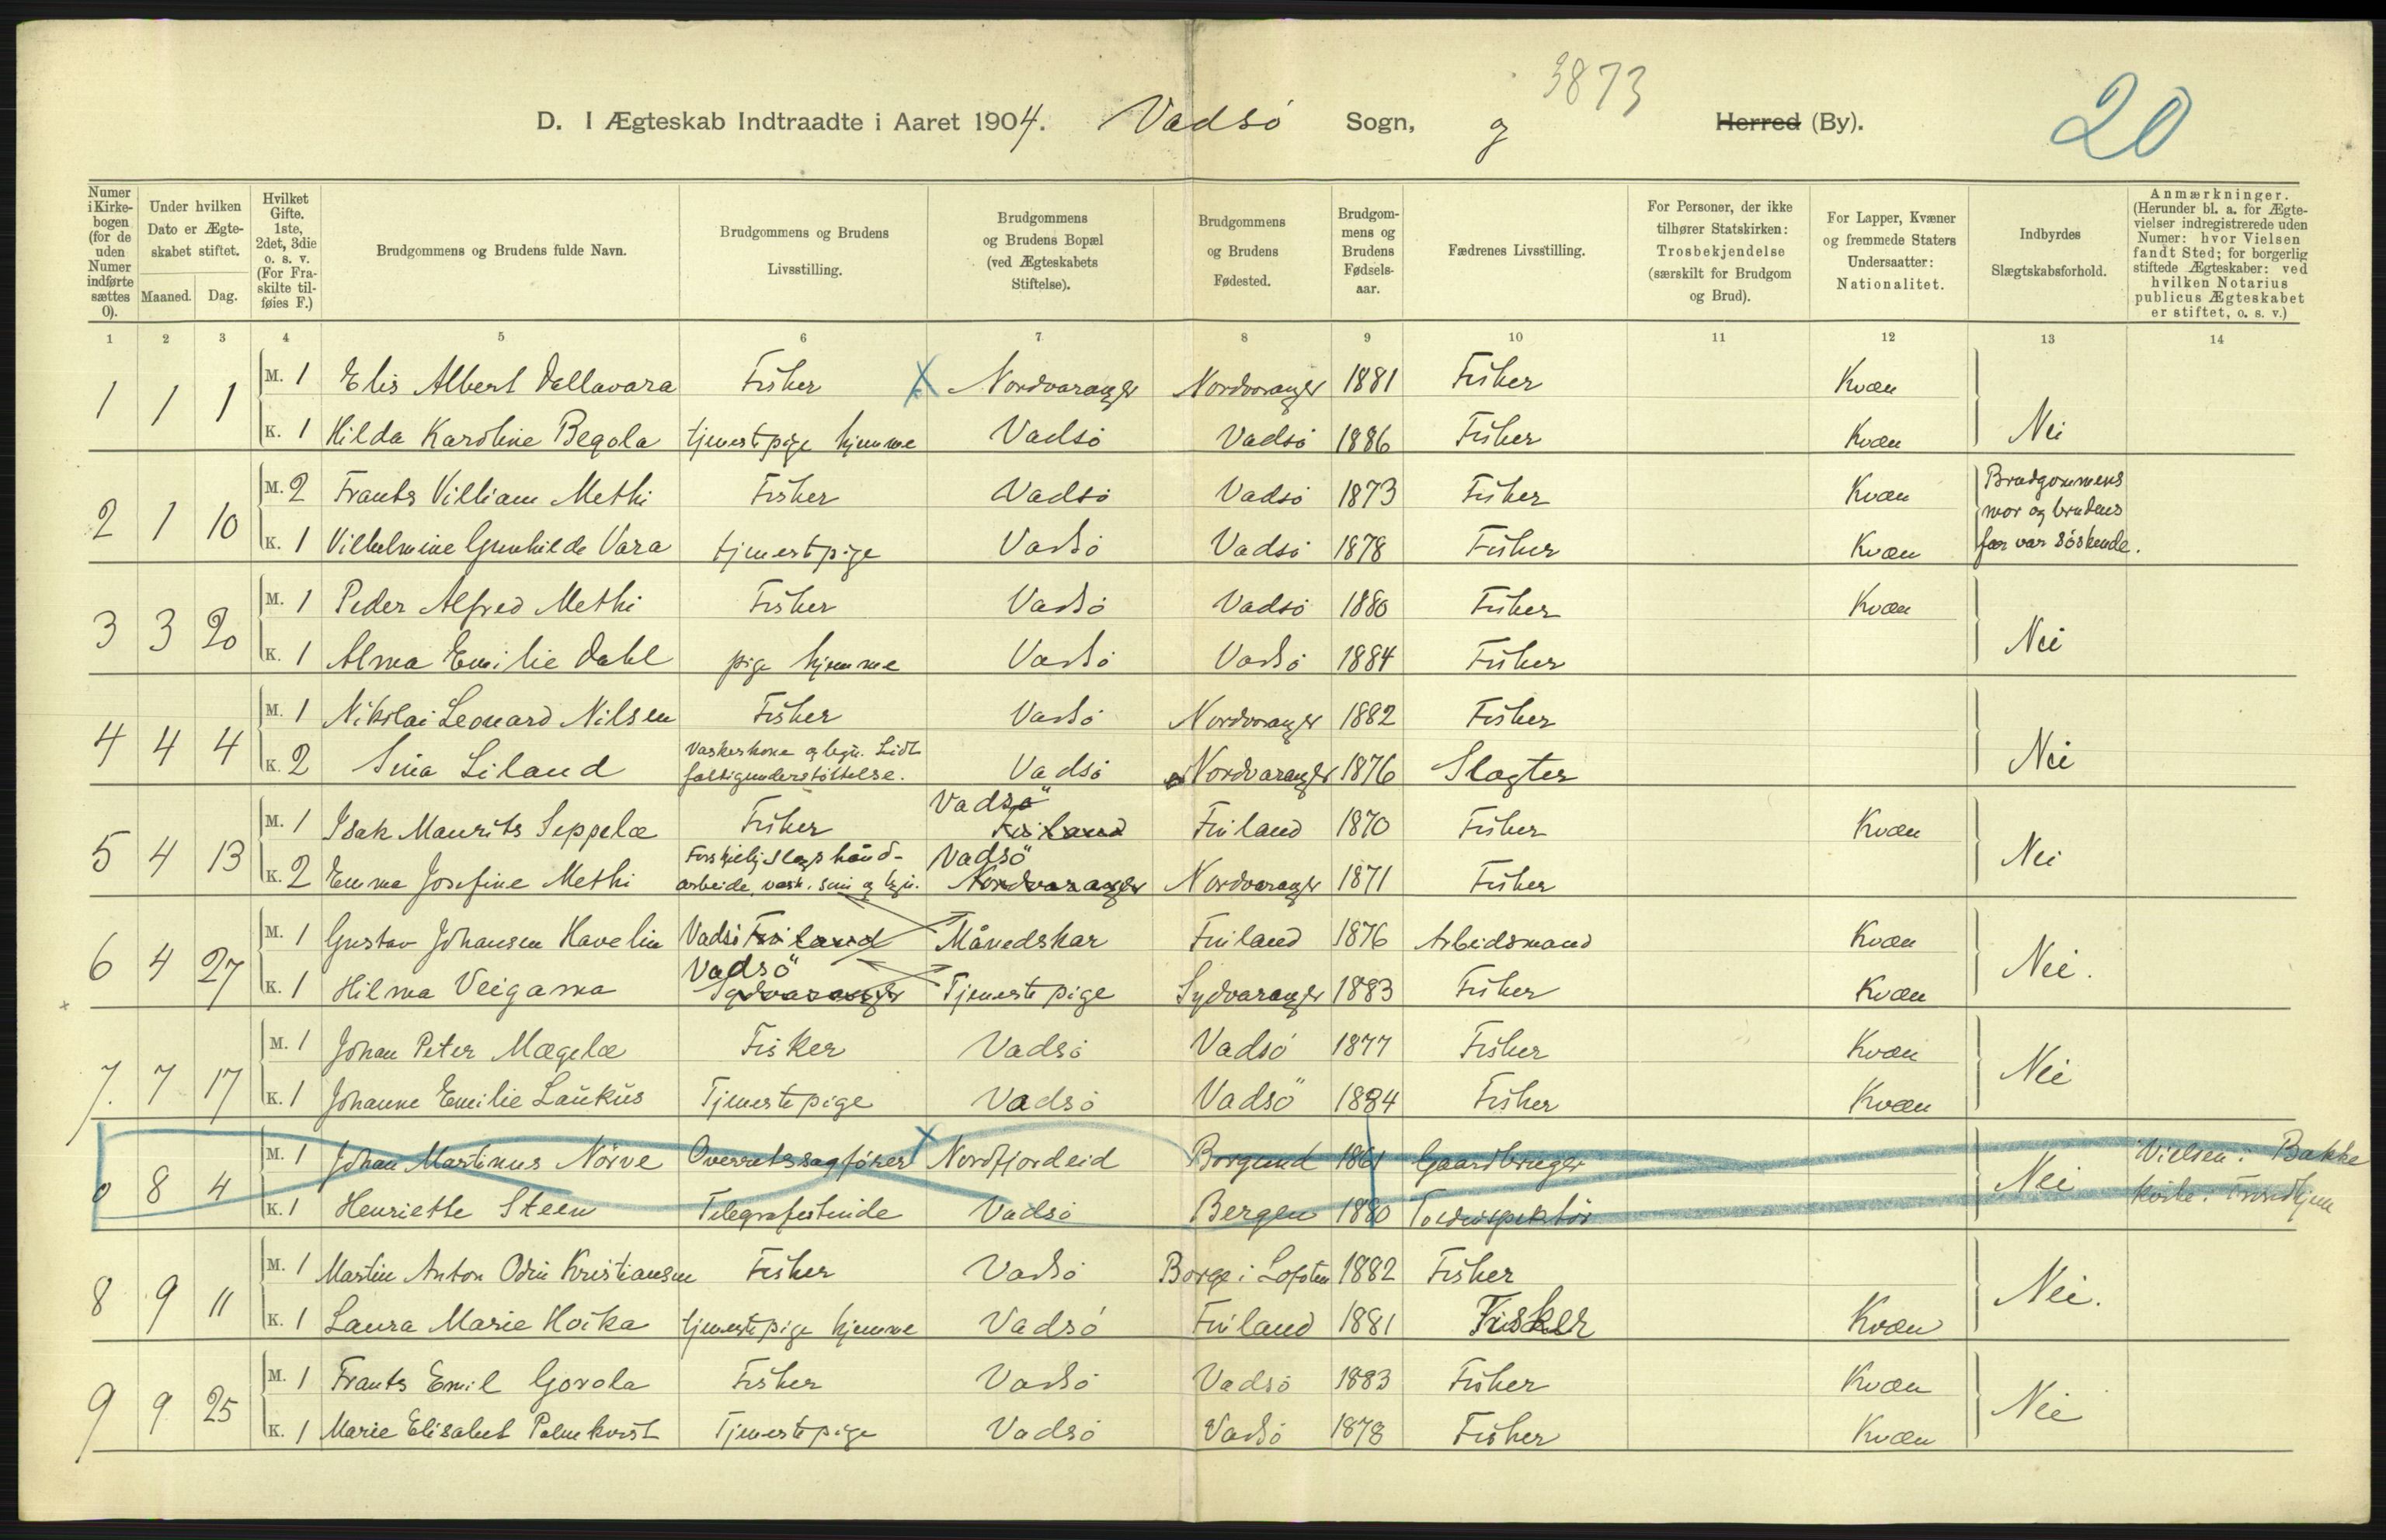 3873
20
D. I Ægteskab Indtraadte i Aaret 1904. Vadsö Sogn, og Herred (By).
Numer i Kirkebogen (for de uden Numer indførte sættes 0).
Under hvilken Dato er Ægteskabet stiftet.
Maaned. Dag.
Hvilket Gifte. 1ste, 2det, 3die o. s. v. (For Fraskilte tilføies F.)
Brudgommens og Brudens fulde Navn.
Brudgommens og Brudens Livsstilling.
Brudgommens og Brudens Bopæl (ved Ægteskabets Stiftelse).
Brudgommens og Brudens Fødested.
Brudgommens og Brudens Fødselsaar.
Fædrenes Livsstilling.
For Personer, der ikke tilhører Statskirken: Trosbekjendelse (særskilt for Brudgom og Brud).
For Lapper, Kvæner og fremmede Staters Undersaatter: Nationalitet.
Indbyrdes Slægtskabsforhold.
Anmærkninger. (Herunder bl. a. for Ægtevielser indregistrerede uden Numer: hvor Vielsen fandt Sted; for borgerlig stiftede Ægteskaber: ved hvilken Notarius publicus Ægteskabet er stiftet, o. s. v.)
1 2 3 4 5 6 7 8 9 10 11 12 13 14
1 1 1 M. 1 Elis Albert Dallavara Fisker X Nordvaranger Nordvaranger 1881 Fisker Kvæn
K. 1 Hilda Karoline Begola tjenestpige hjemme Vadsö Vadsö 1886 Fisker Kvæn Nei
2 1 10 M. 2 Frants Villiam Methi Fisker Vadsö Vadsö 1873 Fisker Kvæn Brudgommens mor og brudens far var söskende.
K. 1 Vilhelmine Gunhilde Vara tjenestpige Vadsö Vadsö 1878 Fisker Kvæn
3 3 20 M. 1 Peder Alfred Methi Fisker Vadsö Vadsö 1880 Fisker Kvæn
K. 1 Alma Emilie Dahl pige hjemme Vadsö Vadsö 1884 Fisker Nei
4 4 4 M. 1 Nikolai Leonard Nilsen Fisker Vadsö Nordvaranger 1882 Fisker
K. 2 Sina Liland Vaskerkone og Lidt fattigunderstöttelse. Vadsö Nordvaranger 1876 Slagter Nei
5 4 13 M. 1 Isak Maurits Seppelæ Fisker Vadsö Finland Finland 1870 Fisker Kvæn
K. 2 Emma Josefine Methi Forskjelig slags håndarbeide, vask. og Vadsö Nordvaranger Nordvaranger 1871 Fisker Nei
6 4 27 M. 1 Gustav Johansen Havelin Vadsö Finland Månedskar Finland 1876 Arbeidsmand Kvæn
K. 1 Hilma Veigama Vadsö Sydvaranger Tjenestepige Sydvaranger 1883 Fisker Kvæn Nei.
7. 7 17 M. 1 Johan Peter Mægelæ Fisker Vadsö Vadsö 1877 Fisker Kvæn
K. 1 Johanne Emilie Laukus Tjenestepige Vadsö Vadsö 1884 Fisker Kvæn Nei
0 8 4 M. 1 Johan Martinus Nörve Overretssagförer X Nordfjordeid Borgund 1861 Gaardbruger Vielsen i Bakke
K. 1 Henriette Steen Telegrafistinde Vadsö Bergen 1880 Toldinspektör Nei Kirke. Trondhjem
8 9 11 M. 1 Martin Anton Odin Kristiansen Fisker Vadsö Borge i Lofoten 1882 Fisker
K. 1 Laura Marie Hoika tjenestpige hjemme Vadsö Finland 1881 Fisker Kvæn Nei.
9 9 25 M. 1 Frants Emil Gorola Fisker Vadsö Vadsö 1883 Fisker Kvæn
K. 1 Marie Elisabet Palmkvist Tjenestepige Vadsö Vadsö 1878 Fisker Kvæn Nei